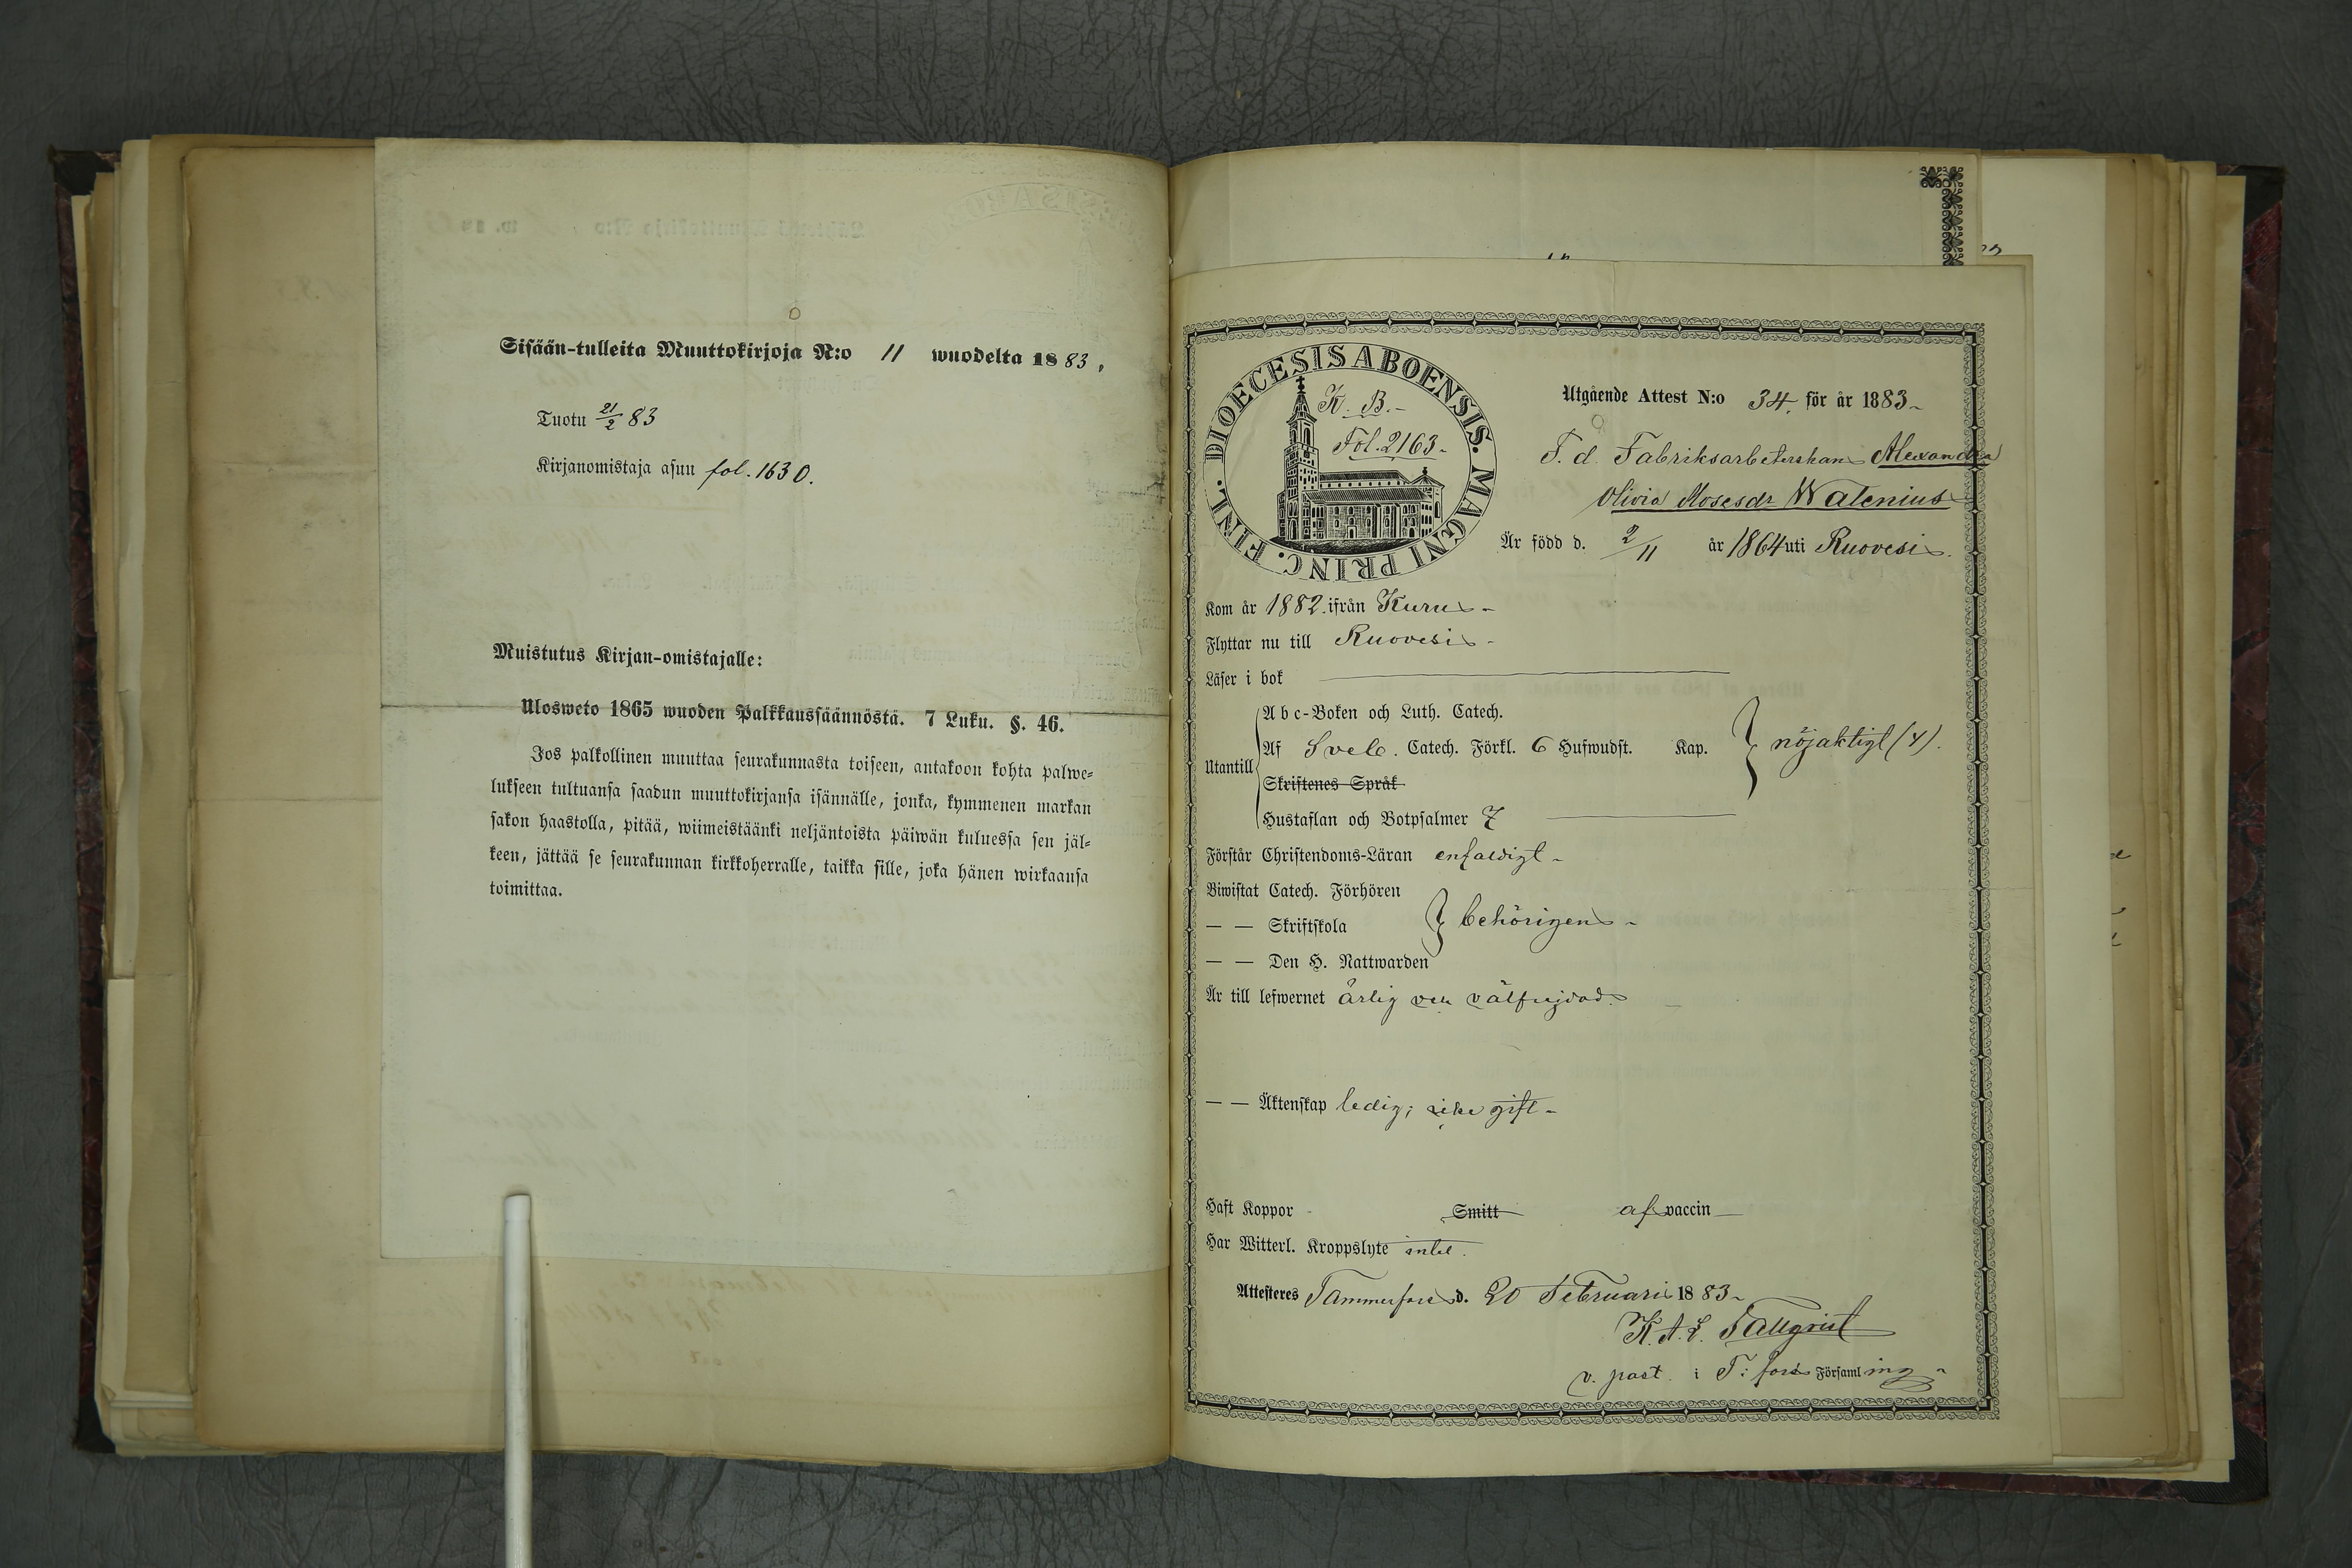 Sisään-tulleita Muuttokirjoja N:o 11 wuodelta 1883,
Tuotu 21/2 83
Kirjanomistaja asuu fol. 1630.
Muistutus Kirjan-omistajalle:
Ulosweto 1865 wuoden Palkkaussäännöstä. 7 Luku. §. 46.
Jos palkollinen muuttaa seurakunnasta toiseen, antakoon kohta palwe-
lukseen tultuansa saadun muuttokirjansa isännälle, jonka, kymmenen markan
sakon haastolla, pitää, wiimeistäänki neljäntoista päiwän kuluessa sen jäl-
keen, jättää se seurakunnan kirkkoherralle, taikka sille, joka hänen wirkaansa
toimittaa.
DIOECESIS ABOENSIS. MAGNI PRINC. FINL.
K. B.-
Fol. 2163-
Utgående Attest N:o 34, för år 1883-
F. d. Fabriksarbeterskan Alexandra
Olivia Mosesdr Walenius
Är född d. 2/11 år 1864 uti Ruovesi.
Kom år 1882. ifrån Kuru -
Flyttar nu till Ruovesi -
Läser i bok
Utantill
Abc-Boken och Luth. Catech.
Af Sveb. Catech. Förkl. 6 Hufwudst. Kap.
nöjaktigt (4).
Skriftenes Språk
Hustaflan och Botpsalmer 7
Förstår Christendoms-Läran enfaldigt -
Biwistat Catech. Förhören
— — Skriftskola behörigen -
— — Den H. Nattwarden
Är till lefwernet ärlig och välfrejdad.
— — Äktenskap ledig; icke gift -
Haft Koppor Smitt af vaccin
Har Witterl. Kroppslyte intet.
Attesteres Tammerfors d. 20 Februari 1883-
K. A. F. Tallqvist
v. past. i T:fors Församling